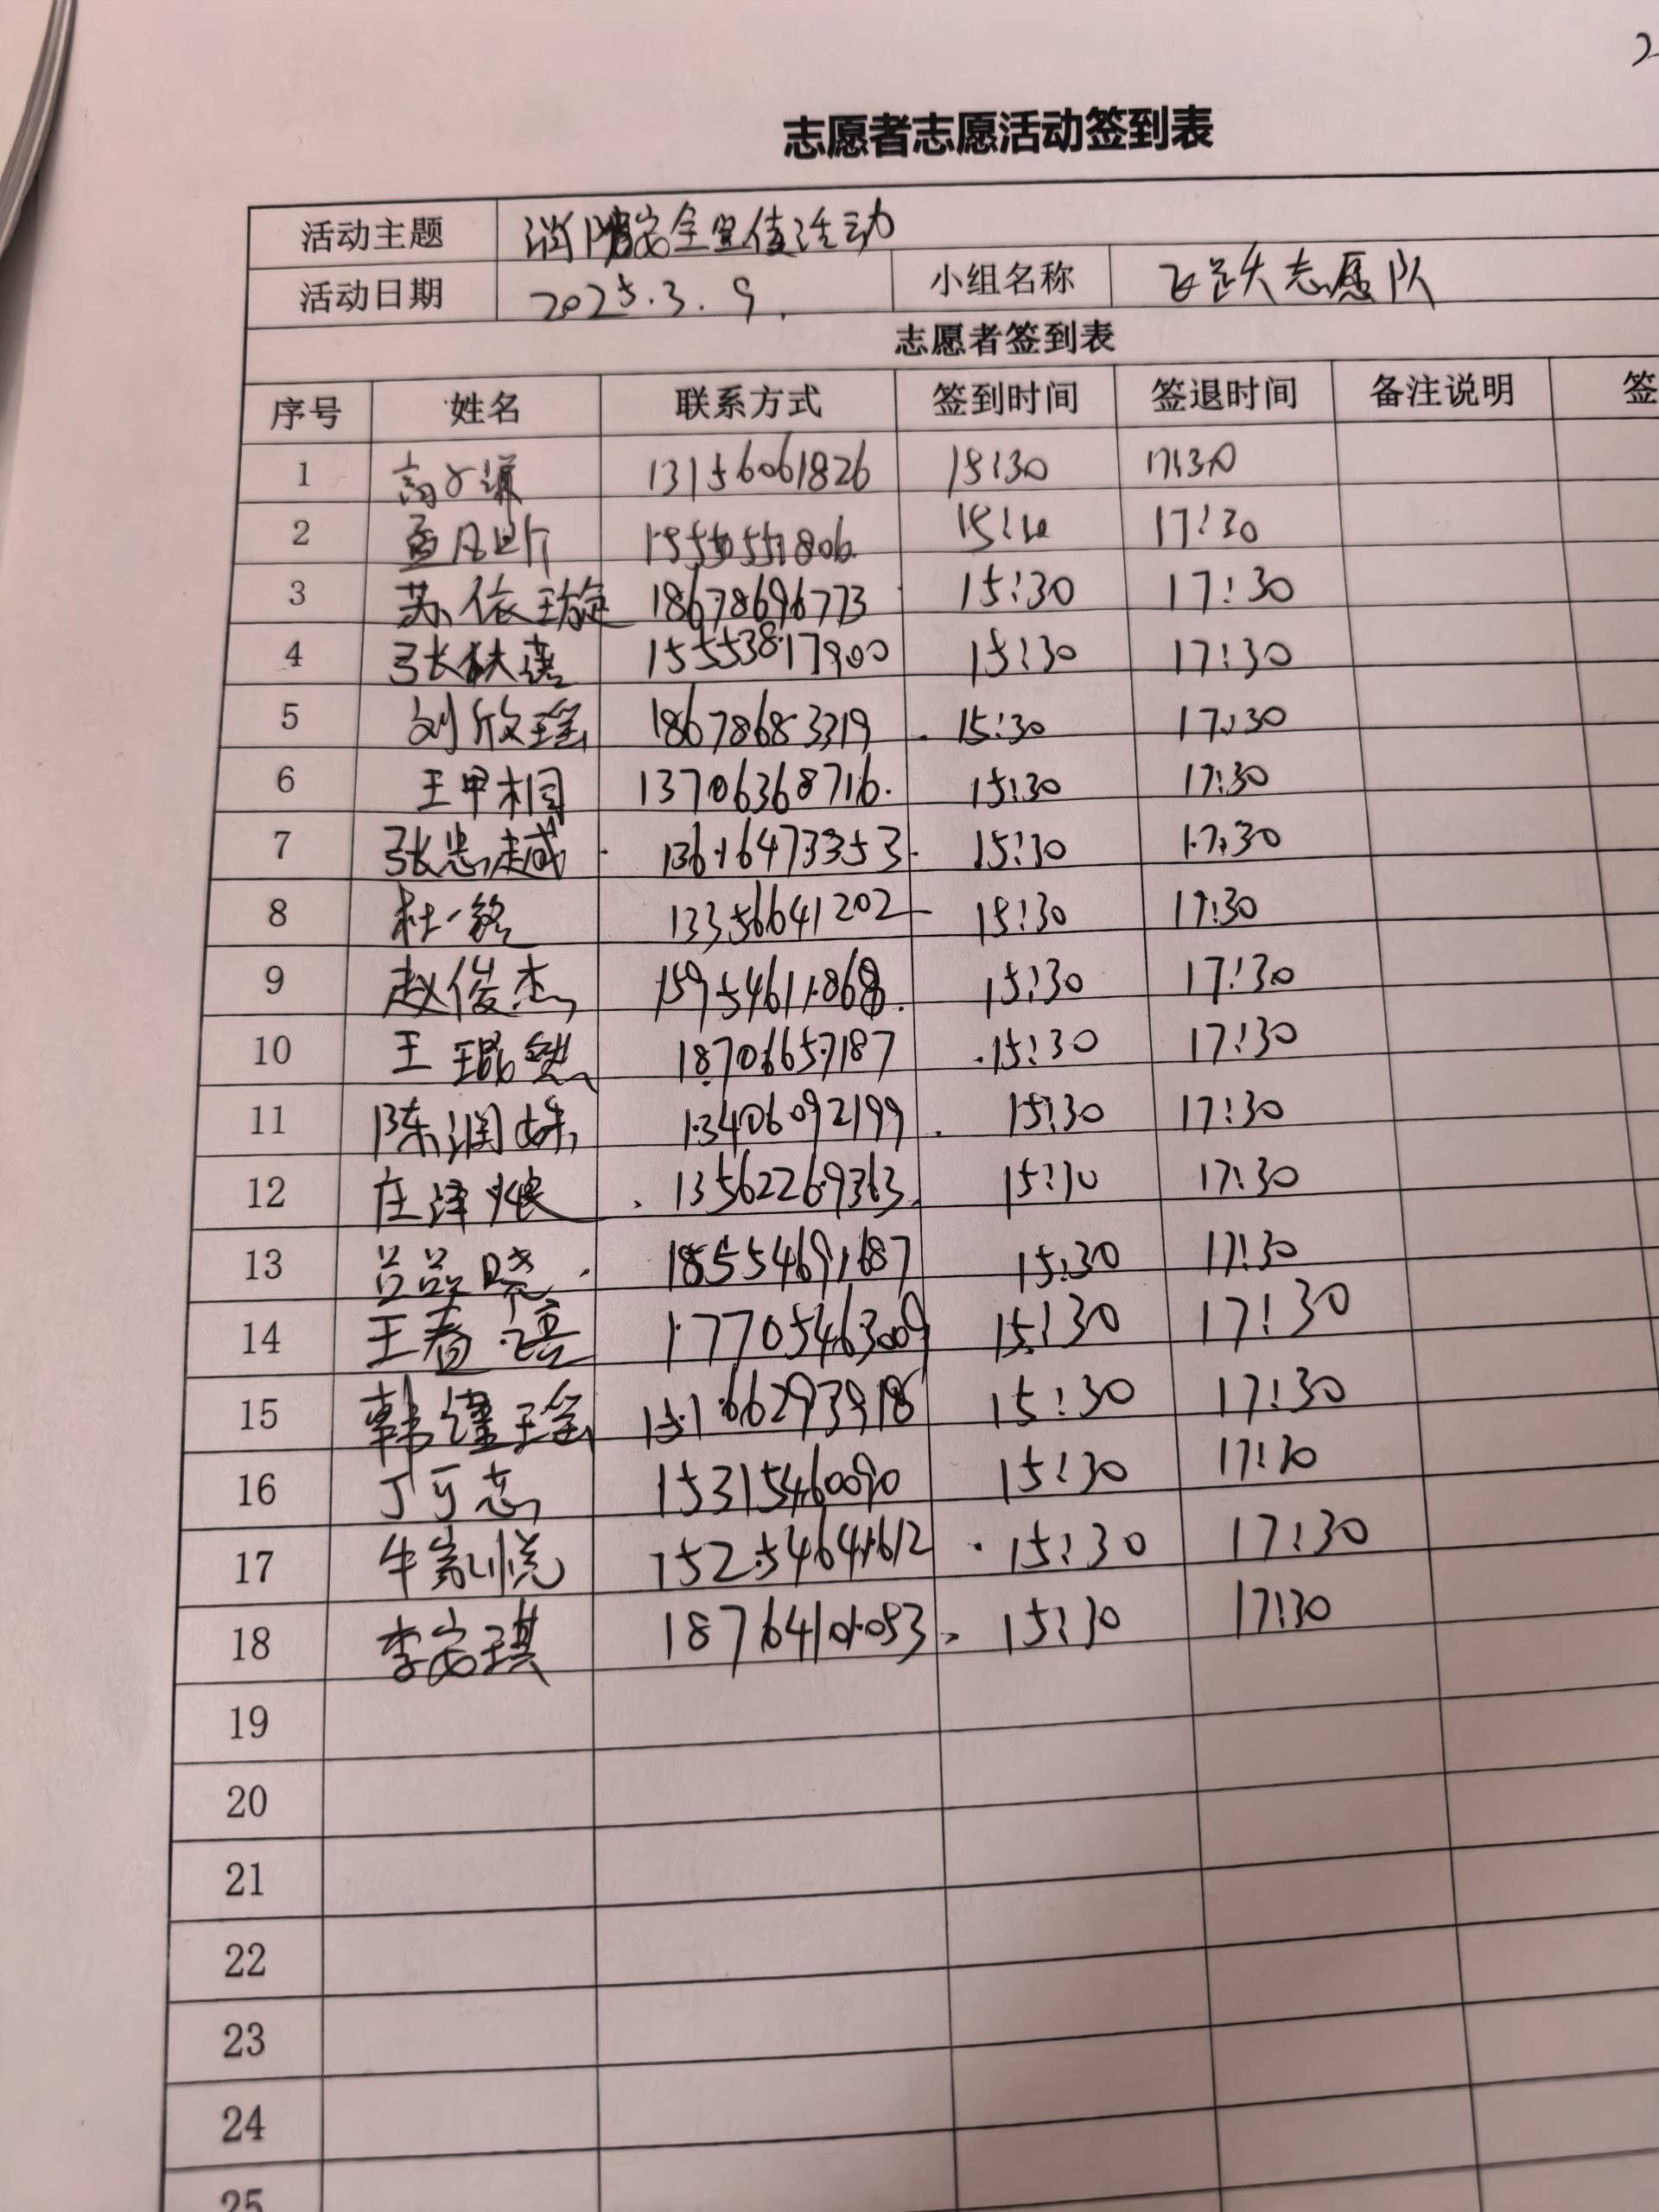 志愿者志愿活动签到表
活动主题 消防安全宣传活动
活动日期 2025.3.9. 小组名称 飞跃志愿队
志愿者签到表
序号 姓名 联系方式 签到时间 签退时间 备注说明 签
1 13156061826 15:30 17:30
2 孟凡 17:30
3 苏依璇 18678696773 15:30 17:30
4 张 15553817900 15:30 17:30
5 刘欣瑶 18678683319 15:30 17:30
6 王甲桐 13706368716. 15:30 17:30
7 张忠越 13616473353. 15:30 17:30
8 杜一铭 13356641202 15:30 17:30
9 赵俊杰 15954611868. 15:30 17:30
10 王琨然 18706657187 15:30 17:30
11 陈润姝 13406092199 15:30 17:30
12 庄泽烺 13562269363 15:30 17:30
13 吕品晓 18554691687 15:30 17:30
14 王春 17705463009 15:30 17:30
15 韩谨瑶 15:30 17:30
16 丁可志 15315460090 15:30 17:30
17 牛家悦 15254641612 15:30 17:30
18 李安琪 18764101053 15:30 17:30
19
20
21
22
23
24
25